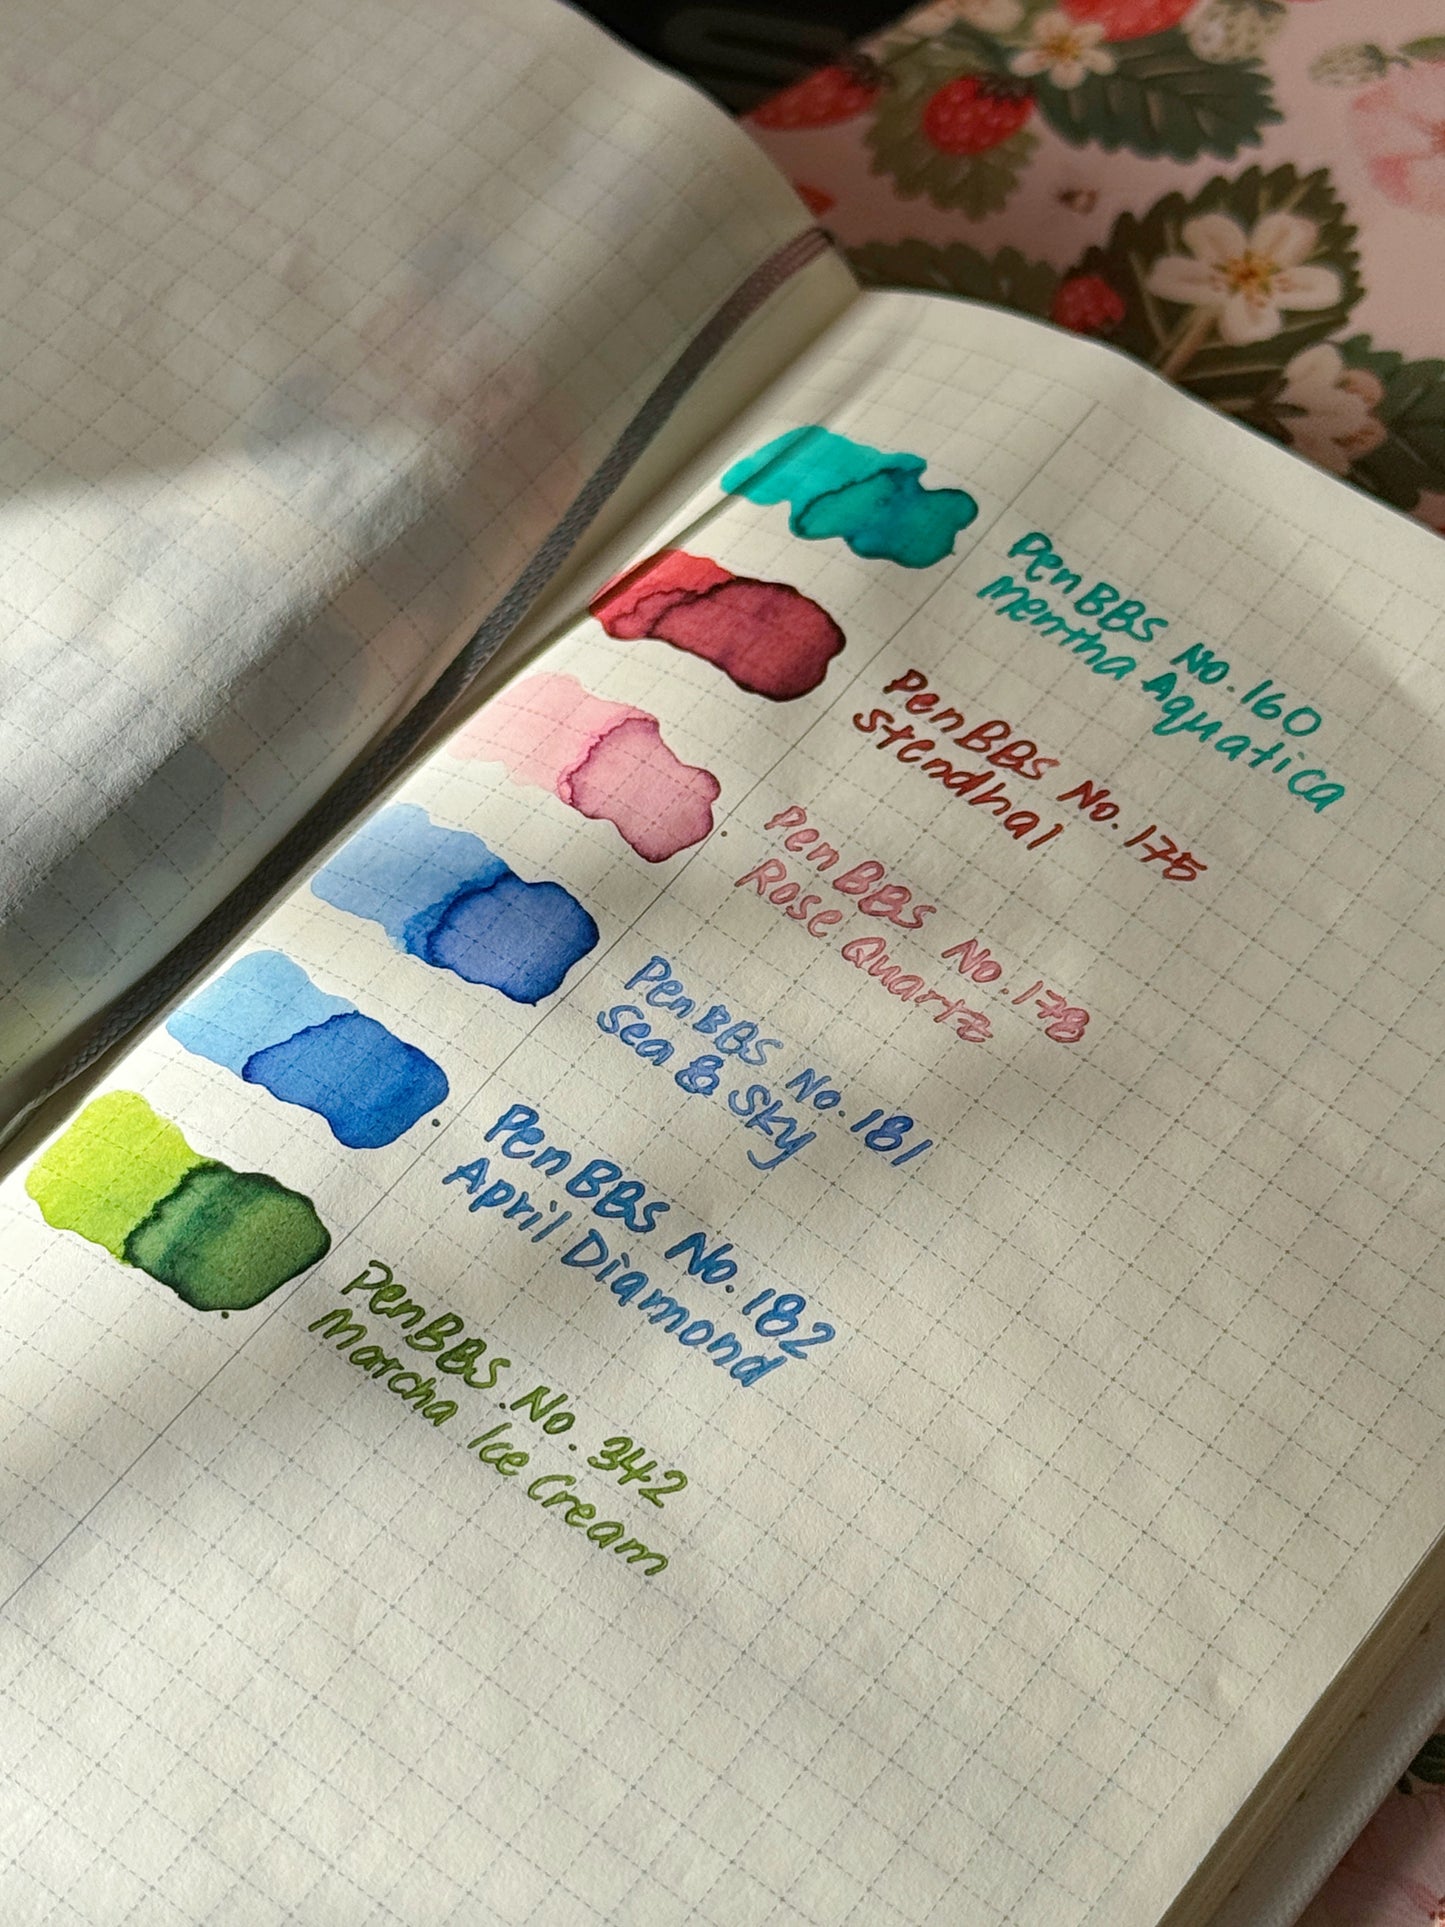 PenBBS No. 160
Mentha Aquatica
PenBBS No. 175
Stendhal
PenBBS No. 178
Rose Quartz
PenBBS No. 181
Sea & Sky
PenBBS No. 182
April Diamond
PenBBS No. 342
Marcha Ice Cream